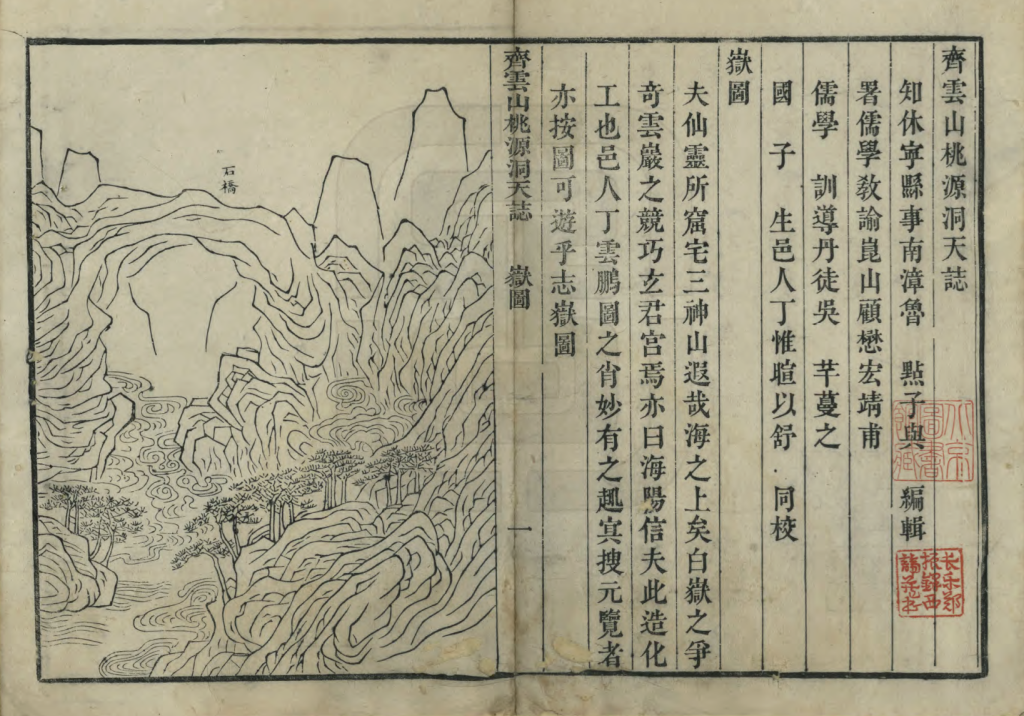 齊雲山桃源洞天誌
知休寧縣事南漳魯　點子與　編輯
署儒學教諭崑山顧懋宏靖甫
儒學　訓導丹徒吳　芊蔓之
國　子　生邑人丁惟暄以舒　同校
嶽圖
夫仙靈所窟宅三神山遐哉海之上矣白嶽之爭
奇雲巖之競巧玄君宮焉亦曰海陽信夫此造化
工也邑人丁雲鵬圖之肖妙有之趣㝠搜元覽者
亦按圖可遊乎志嶽圖
齊雲山桃源洞天誌　嶽圖　一
石橋